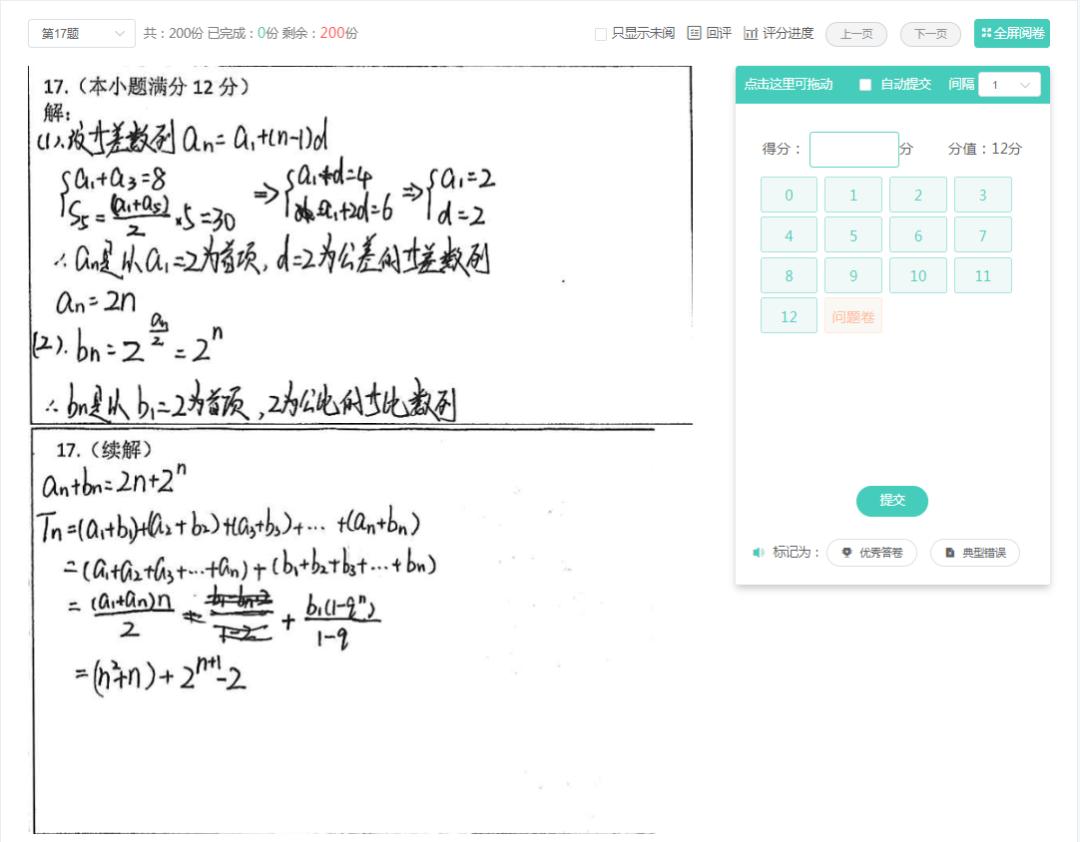 第17题 共：200份 已完成：0份 剩余：200份 只显示未阅 回评 评分进度 上一页 下一页 全屏阅卷
17.（本小题满分 12 分）
解：
(1).设等差数列 an = a₁+(n-1)d
{a₁+a₃=8 ⇒ {a₁+d=4 ⇒ {a₁=2
S₅=(a₁+a₅)/2×5=30 a₁+2d=6 d=2
∴an是以a₁=2为首项,d=2为公差的等差数列
an=2n
(2).bn=2^(an/2)=2ⁿ
∴bn是以b₁=2为首项,2为公比的等比数列
17.（续解）
an+bn=2n+2ⁿ
Tn=(a₁+b₁)+(a₂+b₂)+(a₃+b₃)+…+(an+bn)
=(a₁+a₂+a₃+…+an)+(b₁+b₂+b₃+…+bn)
=(a₁+an)n/2+b₁(1-qⁿ)/1-q
=(n²+n)+2ⁿ⁺¹-2
点击这里可拖动 自动提交 间隔 1
得分： 分 分值：12分
0 1 2 3
4 5 6 7
8 9 10 11
12 问题卷
提交
标记为： 优秀答卷 典型错误